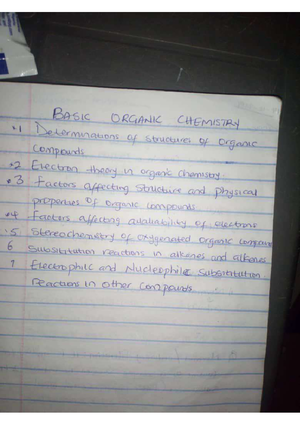 BASIC ORGANIC CHEMISTRY
•1 Determinations of structures of organic
compounds
•2 Electron theory in organic chemistry
•3 Factors affecting structure and physical
properties of organic compounds
•4 Factors affecting availability of electrons
•5 Stereochemistry of oxygenated organic compounds
6 Substitution reactions in alkenes and alkenes
7 Electrophilic and Nucleophilic substitution
reactions in other compounds